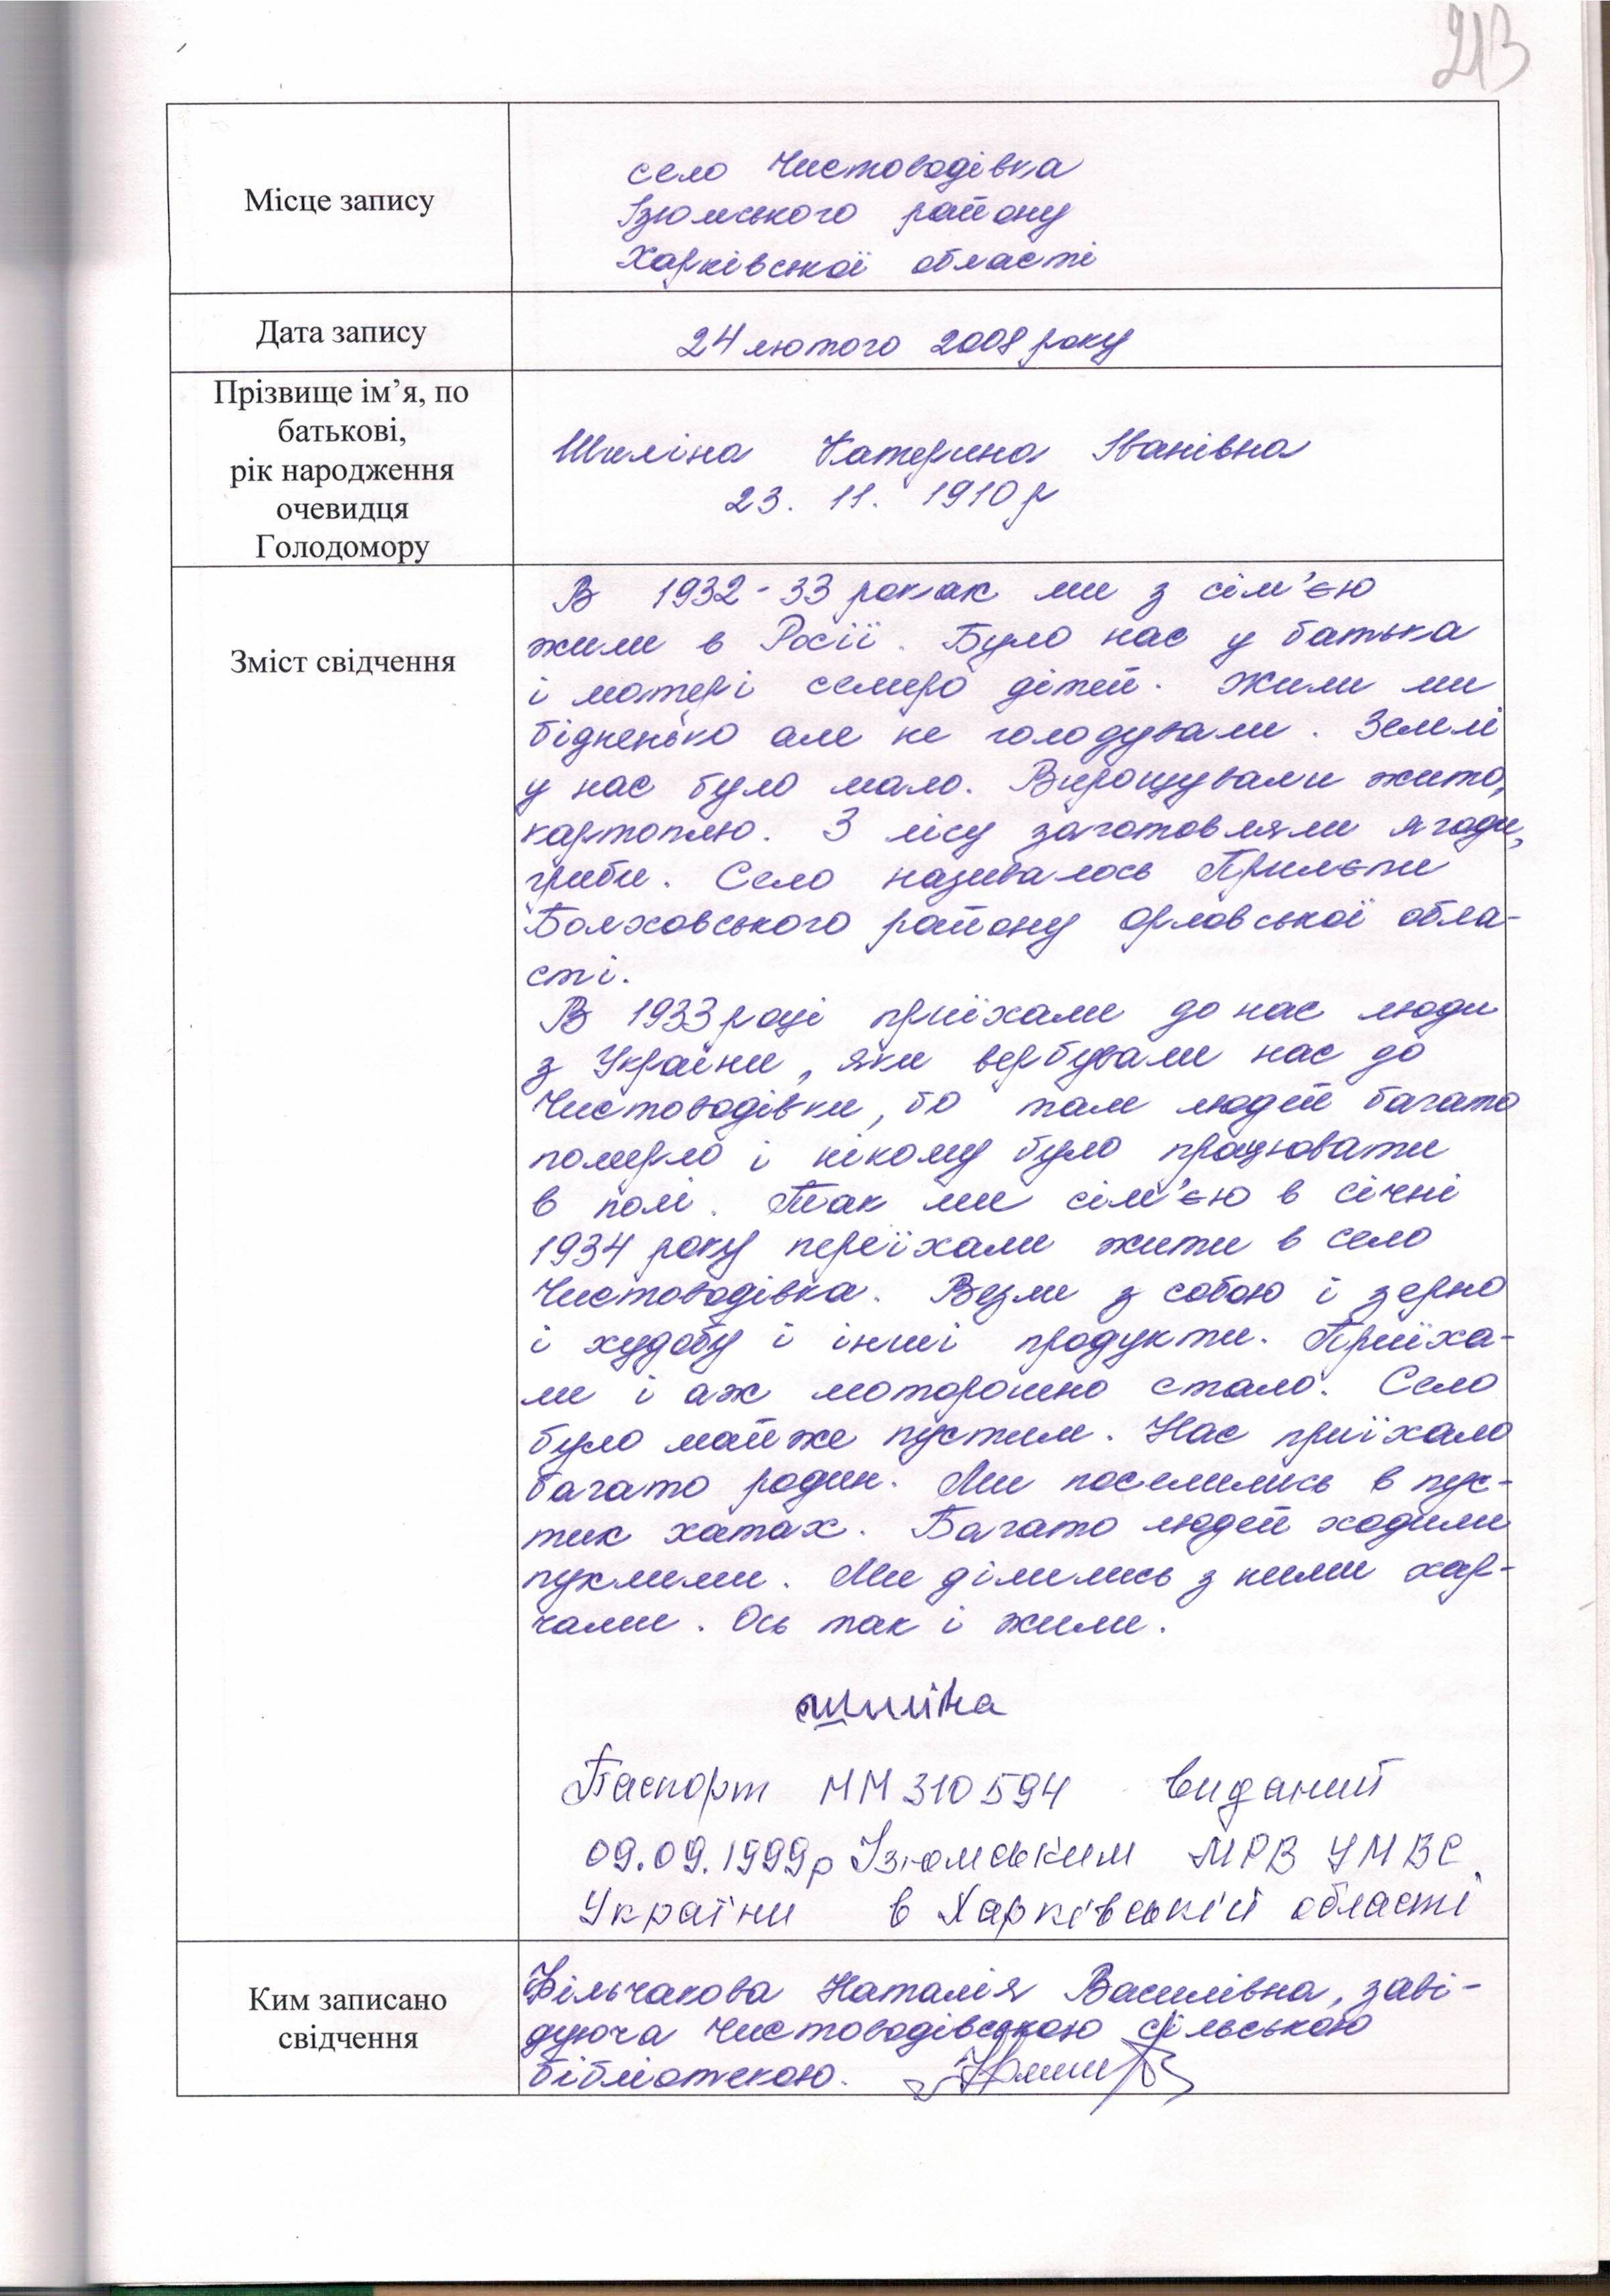 213
Місце запису
село Чистоводівка
Ізюмського району
Харківської області
Дата запису
24 лютого 2008 року
Прізвище ім’я, по
батькові,
рік народження
очевидця
Голодомору
Шиліна Катерина Іванівна
23. 11. 1910 р
Зміст свідчення
В 1932-33 роках ми з сім'єю
жили в Росії. Було нас у батька
і матері семеро дітей. Жили ми
бідненько але не голодували. Землі
у нас було мало. Вирощували жито,
картоплю. З лісу заготовляли ягоди,
гриби. Село називалось Прилєпи
Болховського району Орловської обла-
сті.
В 1933 році приїхали до нас люди
з України, яки вербували нас до
Чистоводівки, бо там людей багато
померло і нікому було працювати
в полі. Так ми сім'єю в січні
1934 року переїхали жити в село
Чистоводівка. Везли з собою і зерно
і худобу і інші продукти. Приїха-
ли і аж моторошно стало. Село
було майже пустим. Нас приїхало
багато родин. Ми поселились в пус-
тих хатах. Багато людей ходили
пухлими. Ми ділились з ними хар-
чами. Ось так і жили.
Шиліна
Паспорт ММ 310594 виданий
09.09.1999р Ізюмським МРВ УМВС
України в Харківській області
Ким записано
свідчення
Фільчакова Наталія Василівна, заві-
дуюча Чистоводівською сільською
бібліотекою.